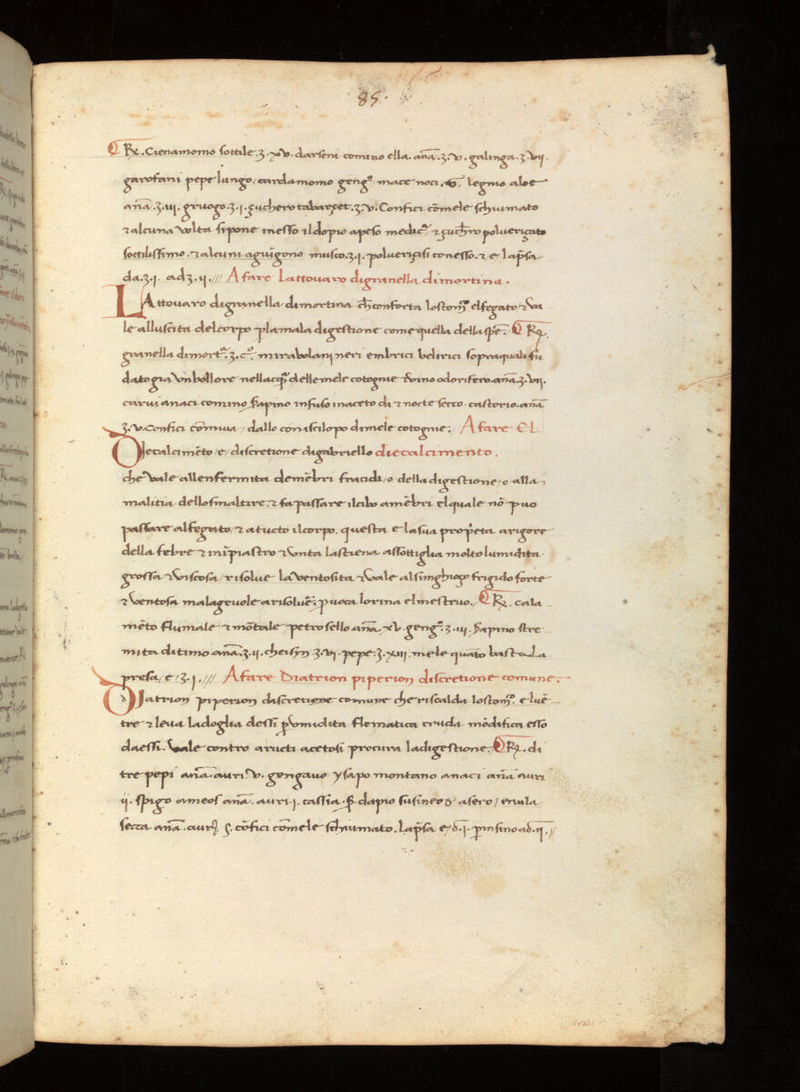 85.
℞. Cienamomo sottile ʒ. xv. darseni comino ella. anā. ʒ. v. galinga. ʒ. vii.
garofani pepe lungo. cardamomo gengᵒ. mace noci. legnio aloe
anā. ʒ. iii. gruogo. ʒ. i. çuchero ʒ. v. Confici cō mele schiumato
⁊ alcuna volta si pone messo il dopio apeso ⁊ poluericato
sottilissimo. ⁊ alcuni agiūgono musco. ʒ. i. poluericasi con esso. ⁊ e la p̄sa
da. ʒ. i. ad ʒ. ii. // A fare Lattouaro digranella di mortina.
LAttouaro digranella di mortina. ch̄ conforta lo stomᵒ el fegato ⁊ va
le all uscita del corpo p la mala digestione come quella della ℞.
granella di mort. ʒ. mirabolani neri embrici belirici sopra quali fu
dato gia vn bollore nell acq̄ delle mele cotognie ⁊ vino odorifero. anā. ʒ. vii.
carui anaci comino s̄apino infuso in aceto di ⁊ nocte secco castorio. anā
ʒ. v. Confici dallo con isciloppo di mele cotognie: A fare EL
Diecalcimēto e discretione di gabriello diecalcimento.
che vale all enfermita de mēbri fracidi o della digestione o alla
malitia dello smaltire. ⁊ fa passare il cibo a mēbri el quale nō puo
passare al fegato ⁊ a tucto il corpo. questa e la sua prop̄eta a rigore
della febre ⁊ inp̄iastro ⁊ vnta la stiena assottiglia molto l umidita
grossa ⁊ viscosa risolue la ventosita ⁊ vale al frigido forte
⁊ ventosa malageuole a risoluē: p uoca l orina el mestruo. ℞. cala
mēto flumale ⁊ mōtale petrosello anā. xv. gengᵒ. ʒ. iii. s̄apino stre
mita di timo anā. ʒ. ii. ʒ. vi. pepe. ʒ. xiii. mele quāto basti La
presa. e. ʒ. i. // A fare Diatrion piperion discretione comune.
Diatrion piperion discretione comune che riscalda lo stomᵒ. e l uē
tre ⁊ leua la doglia d essi p umidita flematica cruda mōdifica esso
da essi. vale contro a ructi acetosi procura la digestione. ℞. di
tre pepi anā. auri. v. gengauo ysapo montano anaci anā auri
ii. spigo ameos anā. auri. i. cassia. d apio susineo asero / enula
secca anā. aurꝫ. ς. cōfici cō mele schiumato. la p̄sa e ʒ. i. p insino ad. ii. //